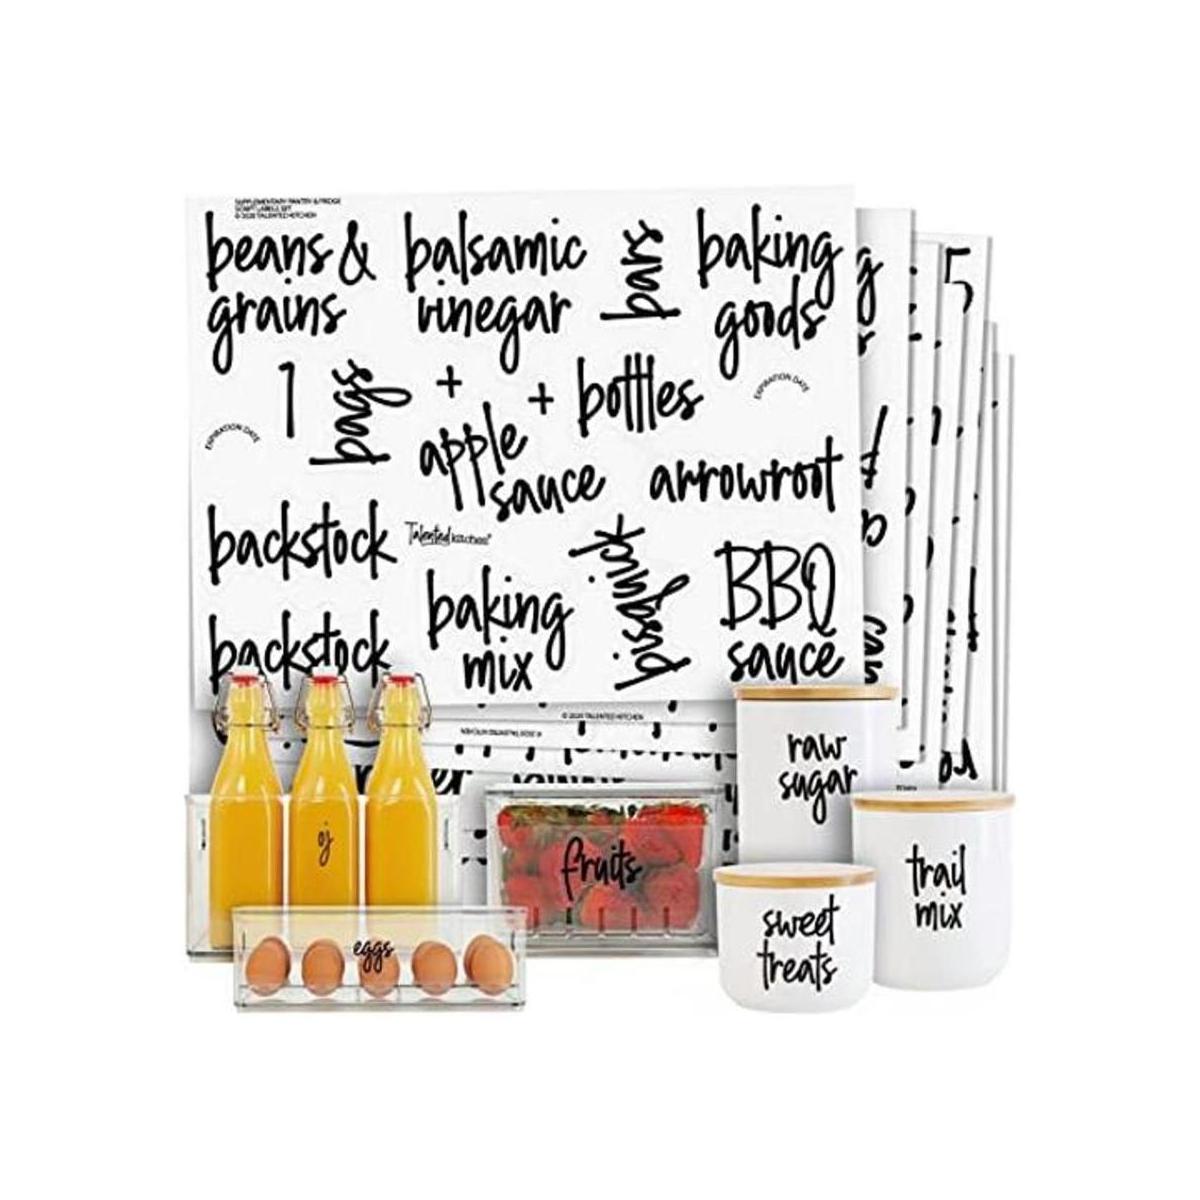 SUPPLEMENTARY PANTRY & FRIDGE
SCRIPT LABELS SET
© 2020 TALENTED KITCHEN
beans &
grains
balsamic
vinegar
bars
baking
goods
1
bags
+
+
bottles
EXPIRATION DATE
EXPIRATION DATE
apple
sauce
arrowroot
backstock
Talented kitchen®
baking
mix
bisquick
BBQ
sauce
backstock
5
© 2020 TALENTED KITCHEN
© 2020 TALENTED KITCHEN
raw
sugar
oj
fruits
trail
mix
sweet
treats
eggs